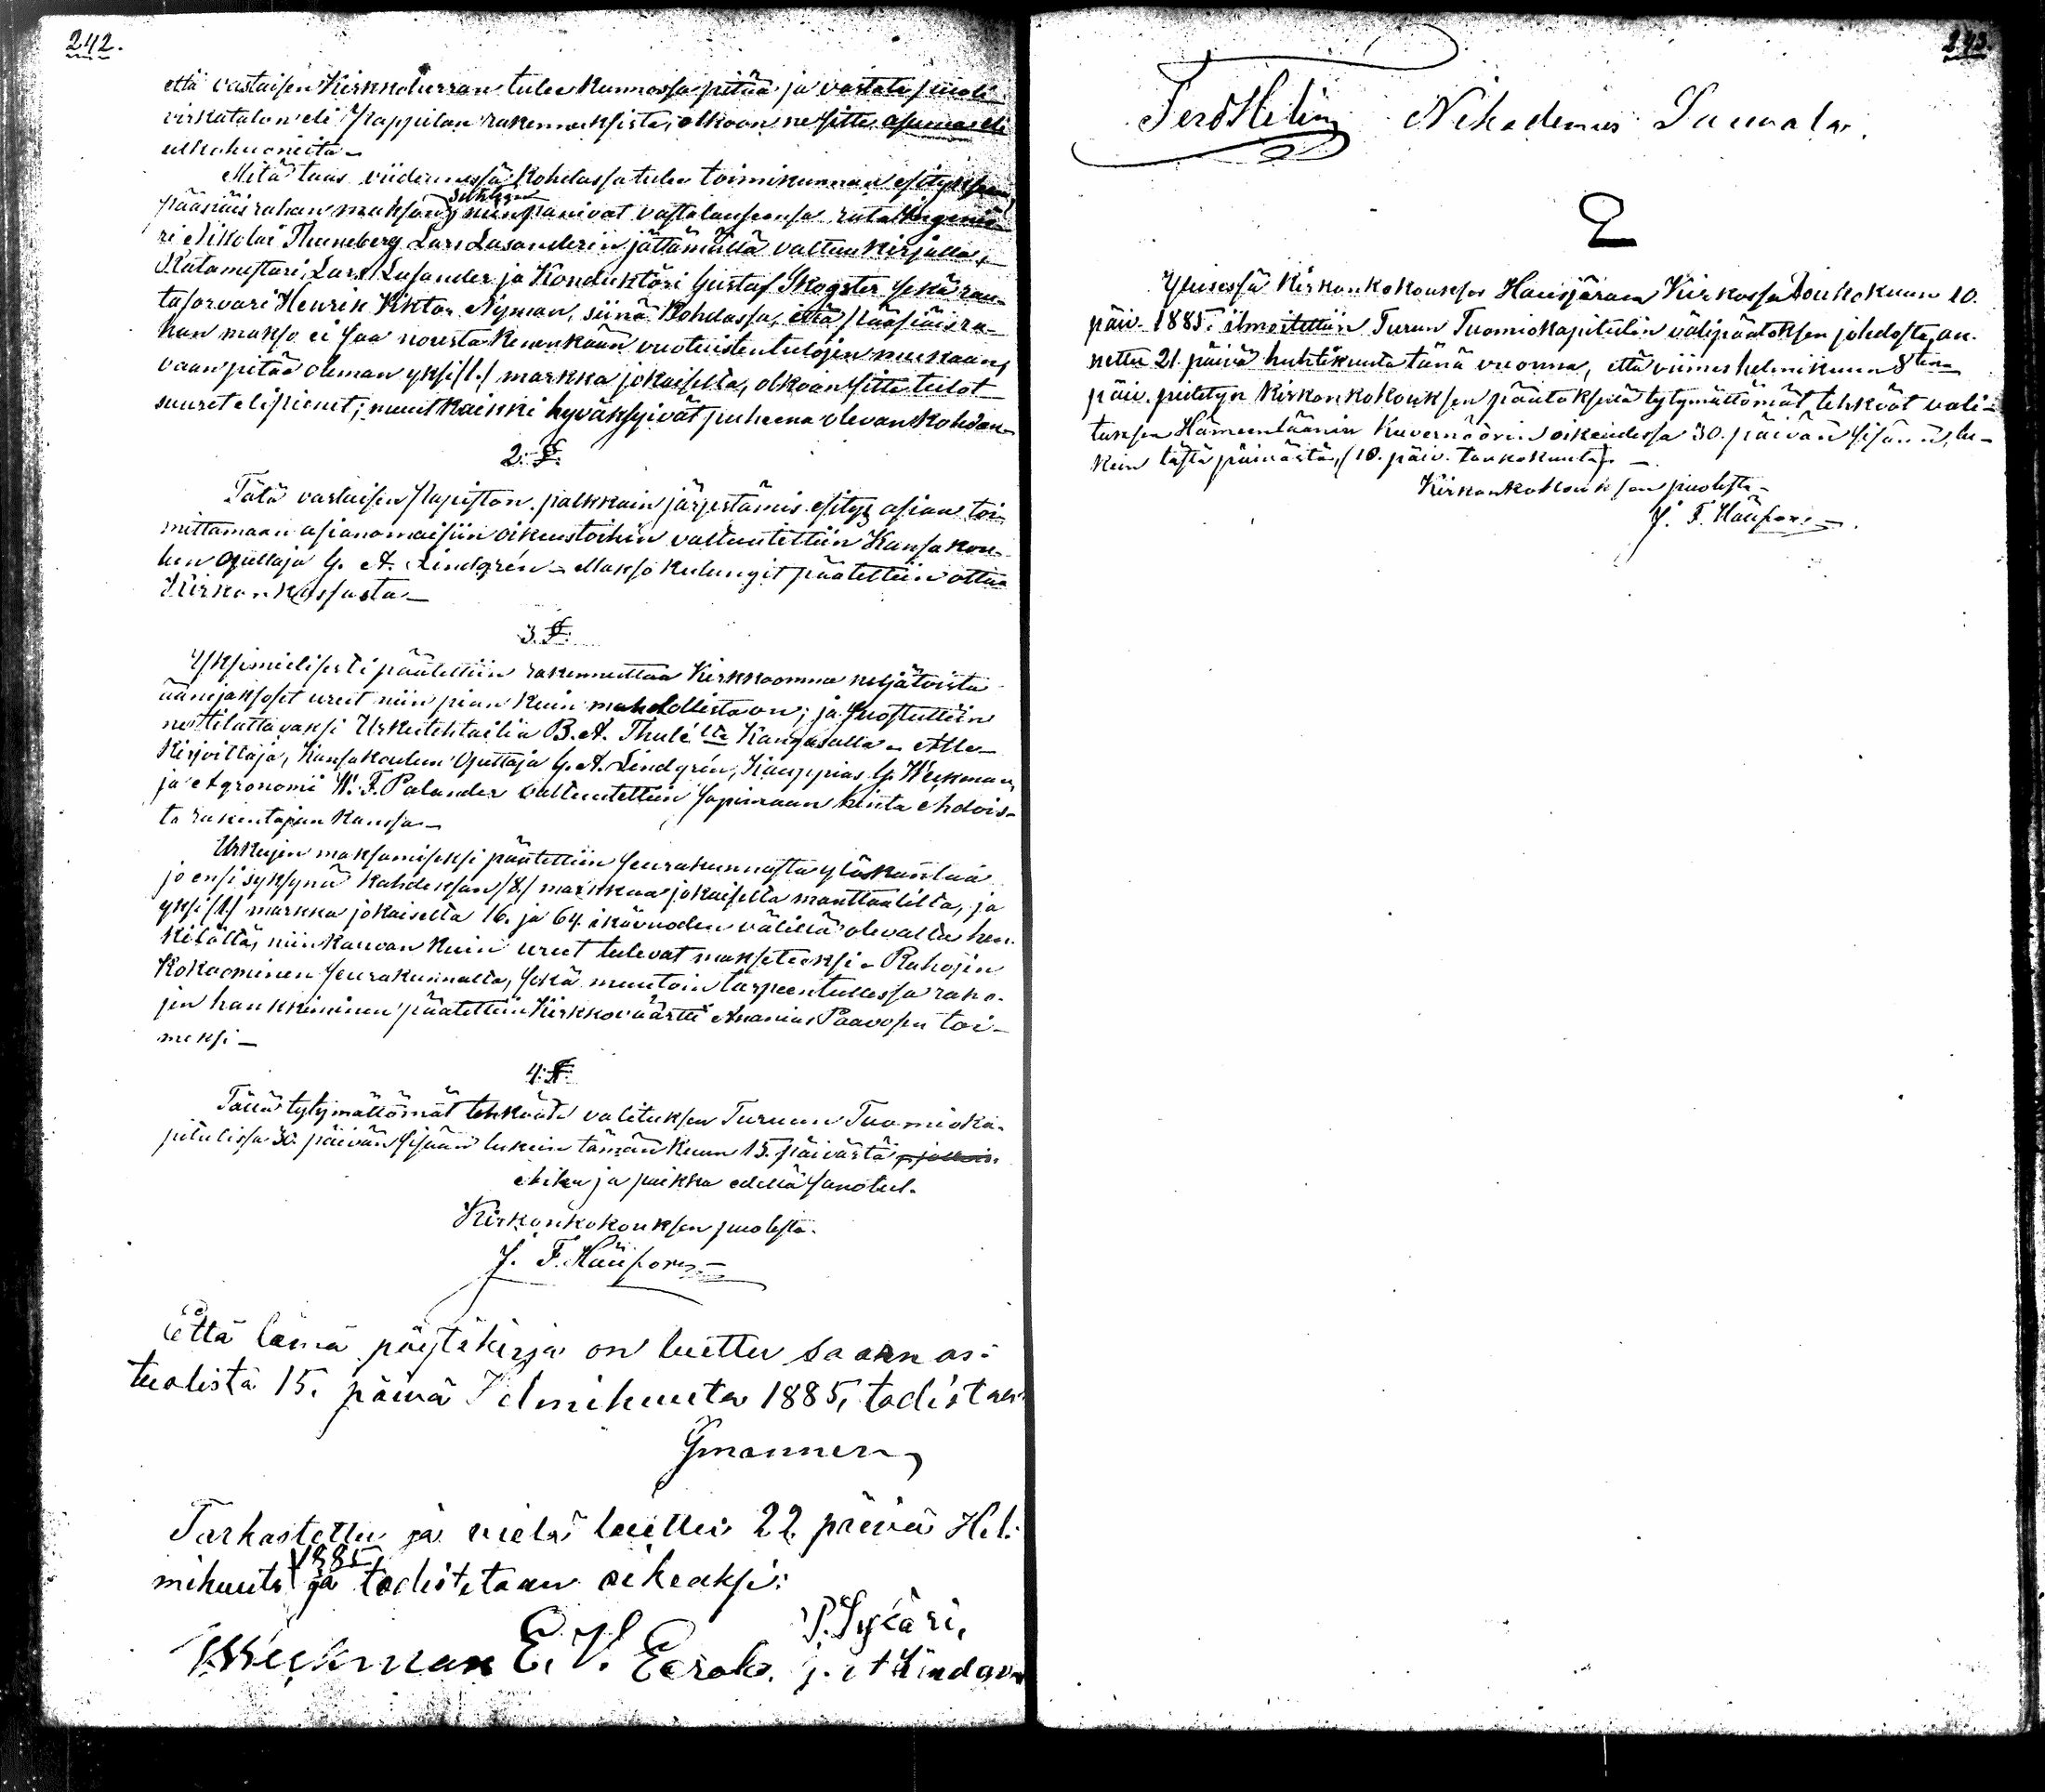 242.
että vastaisen Kirkkoherran tulee kunnossa pitää ja vastata puoli
virkatalon eli Pappilan rakennuksista, olkoon ne sitte asumas eli
ulkohuoneita –
Mitä taas viidennessä kohdassa tulee toimikunnan esityksen
pääsiäisrahan maksoon, suhteen niin panivat vastalauseensa rata Ingeniö-
ri Nikolai Thuneberg Lars Lusanderiin jättämällä valtuukirjalla,
Ratamestari Lars Lusander ja Konduktöri Gustaf Skogster sekä rau-
tasorvari Henrik Viktor Nyman, siinä kohdassa, että pääsiäisra-
han makso ei saa nousta kenenkään vuotuisten tulojen mukaan,
vaan pitää oleman yksi /1./ markka jokaiselta, olkoon sitte tulot
suuret eli pienet; muut kaikki hyväksyivät puheena olevan kohdan –
2. §.
Tätä vastaisen Papiston palkkain järjestämis esitys asian toi-
mittamaan asianomaisiin oikeustoihin valtuutettiin Kansakou-
lun Opettaja G. A. Lindgrén – Makso kulungit päätettiin ottaa
Kirkon kassasta –
3. §.
Yksimielisesti päätettiin rakennuttaa Kirkkoomme neljätoista
äänijaksoset urut niin pian kuin mahdollista on; ja suostuttiin
ne tilattavaksi Urkutehtailia B. A. Thulé lta Kangasalla – Alle-
kirjoittaja, Kansakoulun Opettaja G. A. Lindgrén, Kauppias G. Weckman,
ja Agronomi W. F. Palander valtuutettiin sopimaan hinta ehdois-
ta rakentajan kanssa –
Urkujen maksamiseksi päätettiin seurakunnasta ylöskantaa
jo ensi syksynä kahdeksan /8./ markkaa jokaiselta manttaalilta, ja
yksi /1./ markka jokaiselta 16. ja 64. ikävuoden välillä olevalta hen-
kilöltä, niin kauvan kuin urut tulevat maksetuksi – Rahojen
Kokoominen seurakunnalta, sekä muutoin tarpeen tullessa raho-
jen hankkiminen päätettiin Kirkkoväärtti Ananias Paavosen toi-
meksi –
4. §.
Tähän tytymättömät tehkööt valituksen Turuun Tuomioka-
pitulissa 30. päivän sisään lukein tämän kuun 15. päivästä
Aika ja paikka edellä sanotut.
Kirkonkokouksen puolesta.
J. F. Hääfors –
Että tämä pöytäkirja on luettu saarnas-
tuolista 15. päivä Helmikuuta 1885, todistaa
Gmanner
Tarkastettu ja vielä luettu 22. päivä Hel-
mikuuta 1885 ja todistetaan oikeaksi:
P. Sykäri,
GWeckman E. V. Eerola. G. A Lindgrén
243.
Ferd Helin Nikodemus Sauvala.
Yleisessä Kirkonkokouksessa Hausjärven Kirkossa Toukokuun 10.
päiv. 1885. ilmoitettiin Turun Tuomiokapitulin välipäätöksen johdosta, an-
nettu 21. päivä huhtikuuta tänä vuonna, että viimes helmikuun 8 tena
päiv. pidetyn Kirkonkokouksen päätöksiin tytymättömät tehkööt vali-
tuksen Hämeenläänin Kuvernöörin oikeudessa 30. päivän sisään, lu-
kein tästä päivästä, /10. päiv. toukokuuta/ –
Kirkonkokouksen puolesta –
J. F. Hääfors –